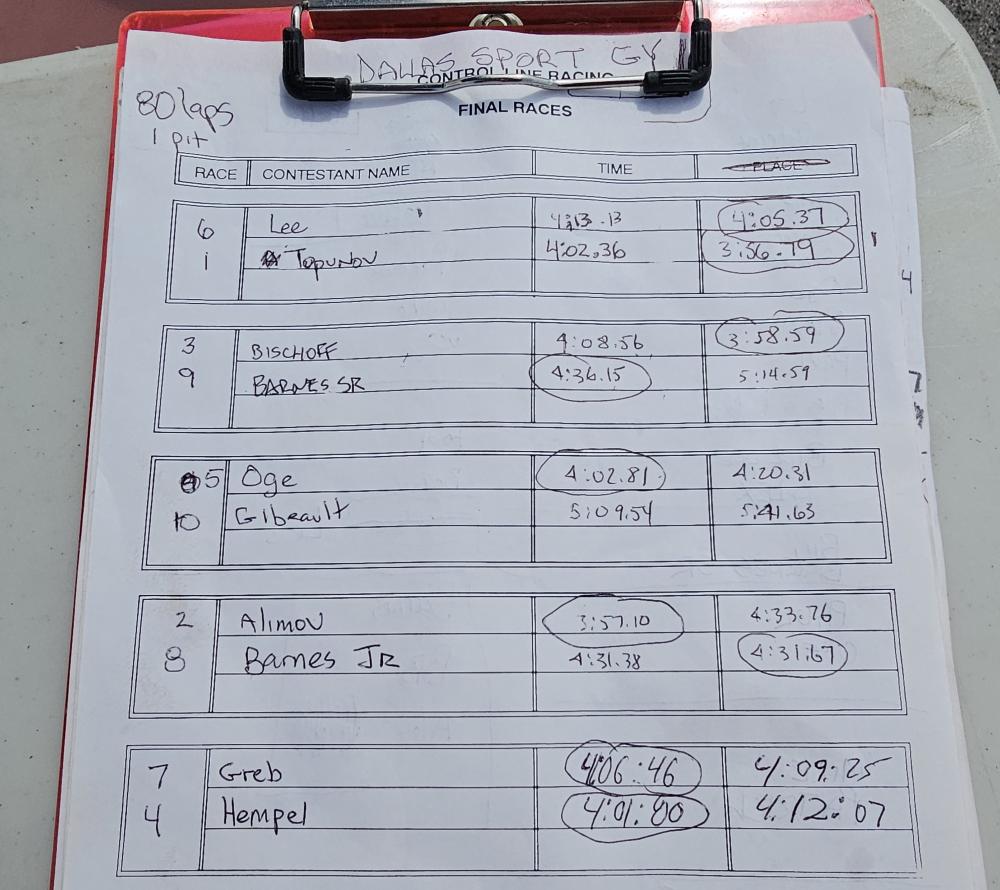 DALLAS SPORT GY
CONTROL LINE RACING
FINAL RACES
80 laps
1 pit
RACE CONTESTANT NAME TIME PLACE
6 Lee 4:13.13 4:05.37
1 Topunov 4:02.36 3:56.79
3 BISCHOFF 4:08.56 3:58.59
9 BARNES SR 4:36.15 5:14.59
5 Oge 4:02.81 4:20.31
10 Gibeault 5:09.54 5:41.63
2 Alimov 3:57.10 4:33.76
8 Barnes JR 4:31.38 4:31.67
7 Greb 4:06:46 4:09:25
4 Hempel 4:01:80 4:12:07
4
7